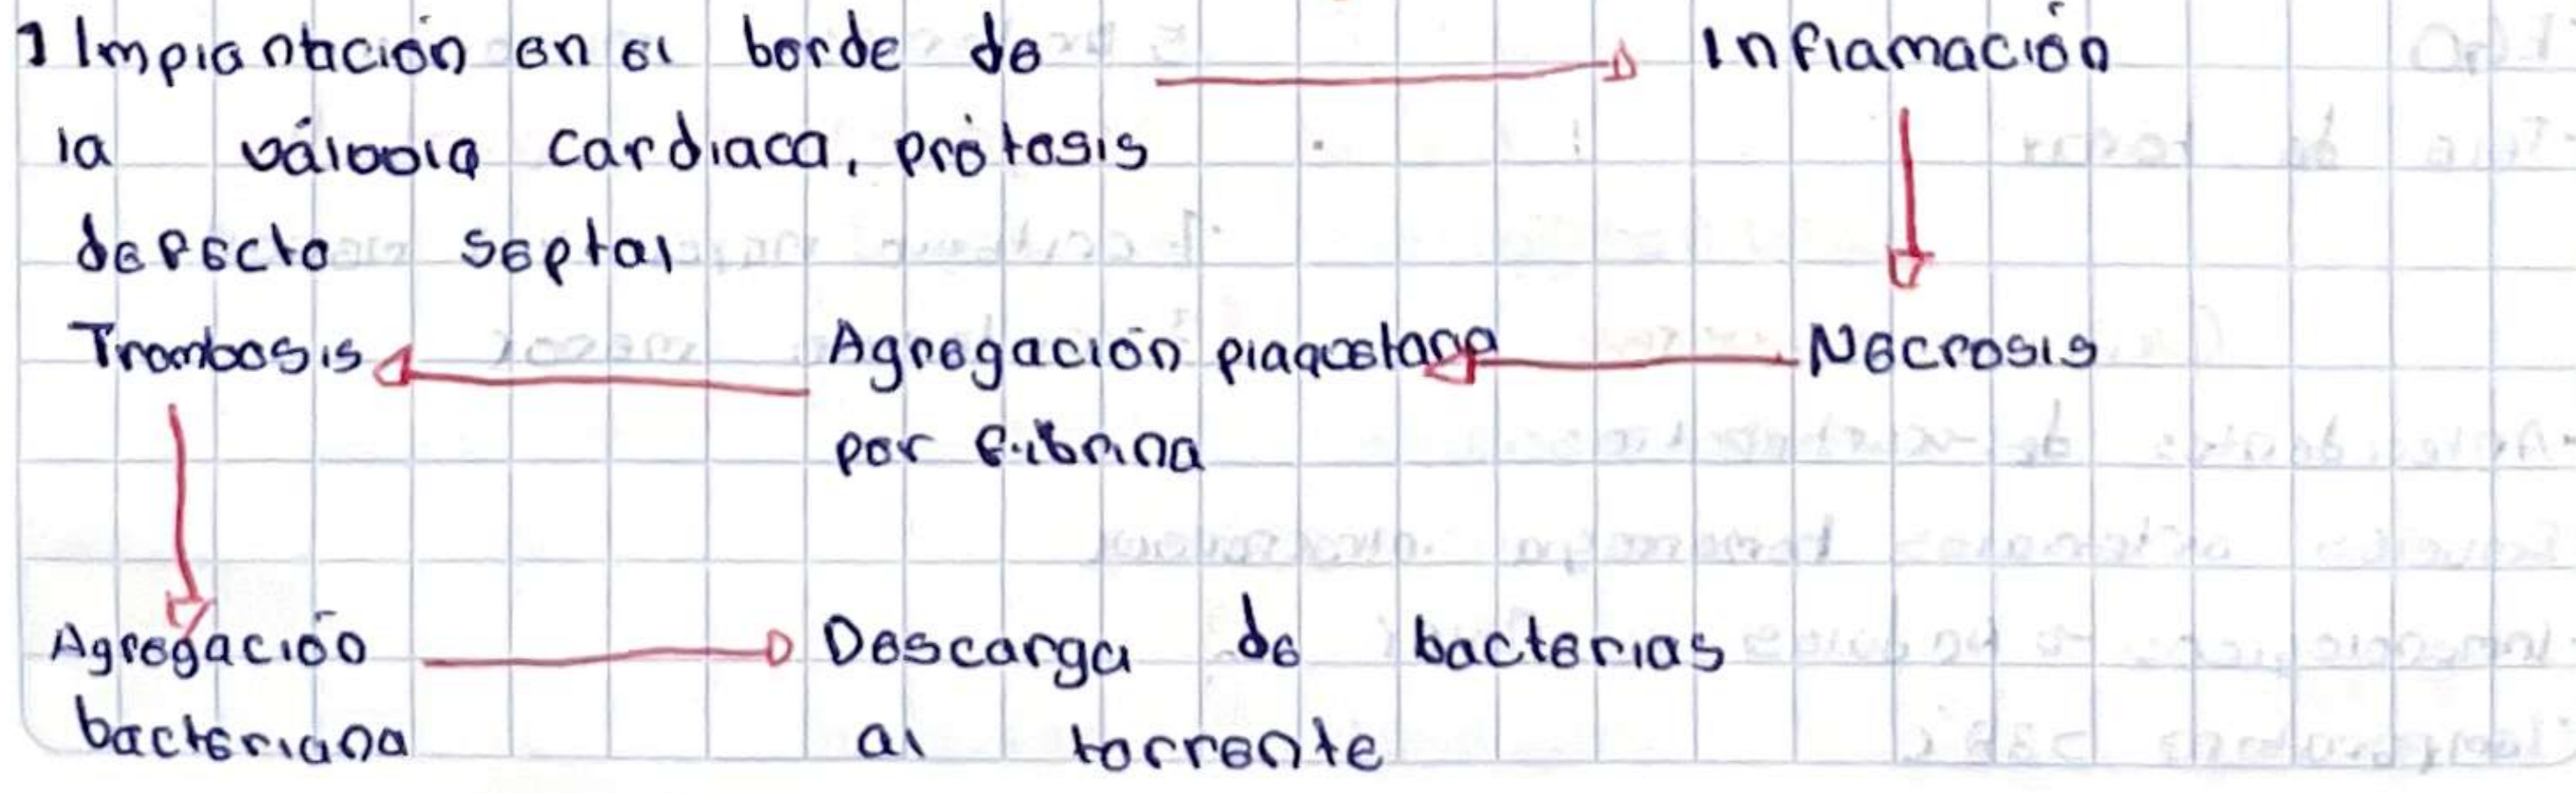 1 Implantación en el borde de
la válvula cardiaca, prótesis
defecto septal
Inflamación
Necrosis
Agregación plaquetaria
por fibrina
Trombosis
Agregación
bacteriana
Descarga de bacterias
al torrente